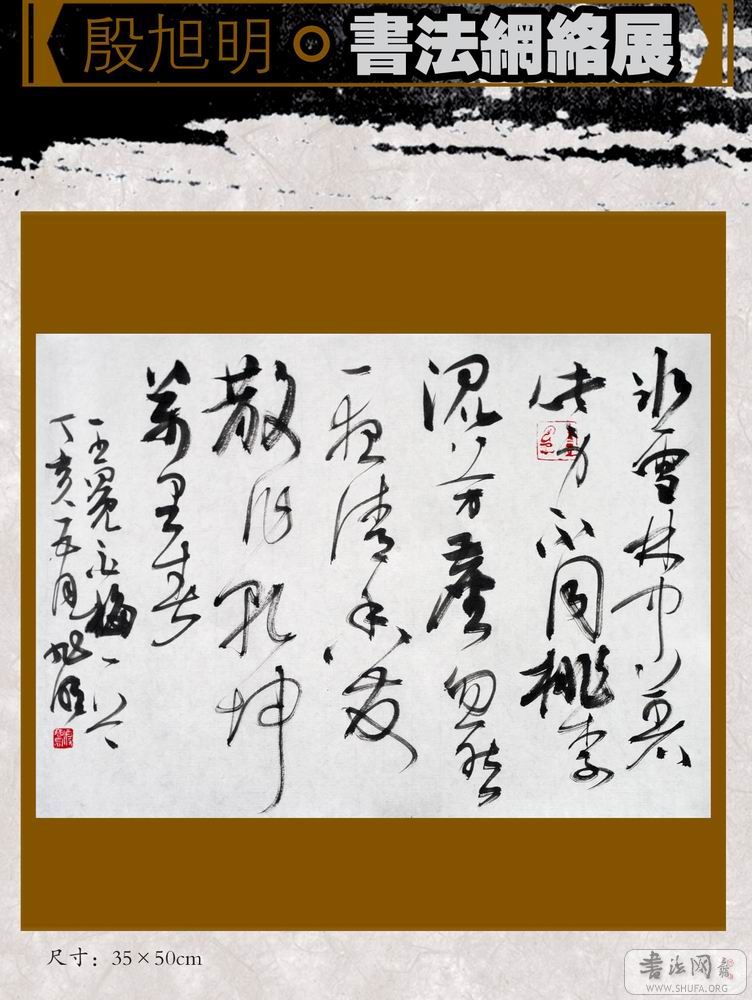 殷旭明 書法網絡展
冰雪林中著
此身不同桃李
混芳塵忽然
一夜清香發
散作乾坤
萬里春
王冕白梅一首
丁亥年五月旭明
尺寸：35×50cm
書法网
WWW.SHUFA.ORG